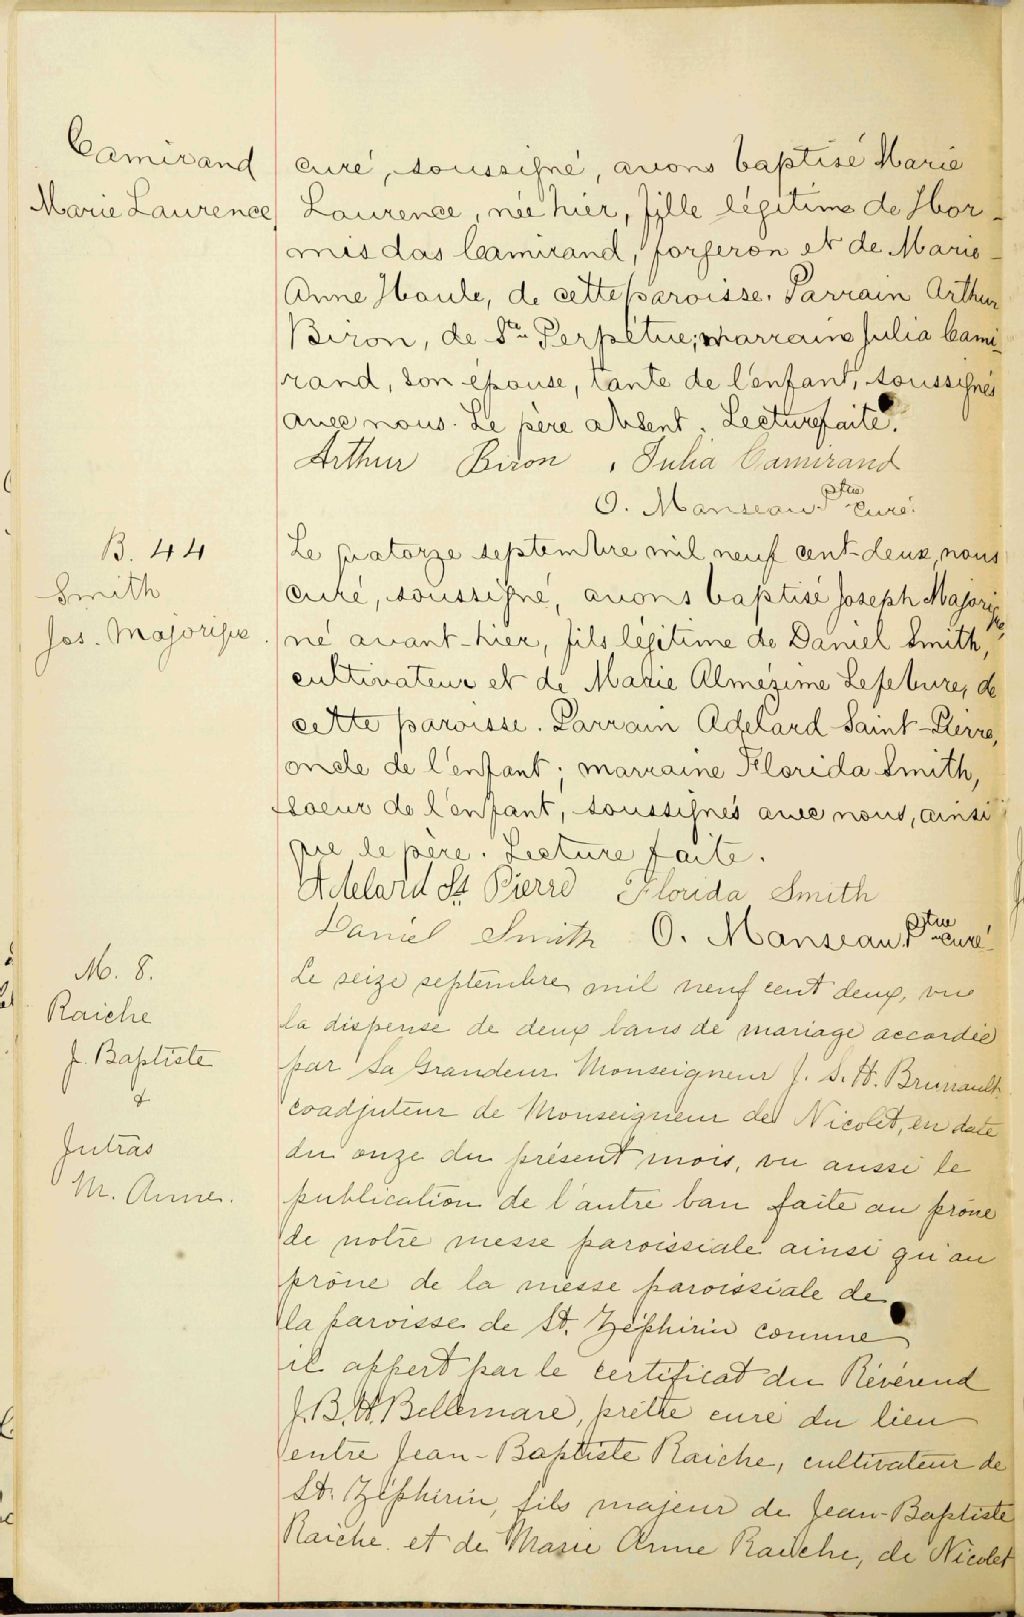 Camirand
Marie Laurence
curé, soussigné, avons baptisé Marie
Laurence, née hier, fille légitime de Hor-
misdas Camirand, forgeron et de Marie-
Anne Houle, de cette paroisse. Parrain Arthur
Biron, de Ste Perpétue; marraine Julia Cami-
rand, son épouse, tante de l'enfant, soussignés
avec nous. Le père absent. Lecture faite.
Arthur Biron, Julia Camirand
O. Manseau Ptre curé.
B. 44
Smith
Jos. Majorique
Le quatorze septembre mil neuf cent-deux, nous
curé, soussigné, avons baptisé Joseph Majorique,
né avant-hier, fils légitime de Daniel Smith,
cultivateur et de Marie Almézime Lefebvre, de
cette paroisse. Parrain Adélard Saint-Pierre,
oncle de l'enfant; marraine Florida Smith,
soeur de l'enfant, soussignés avec nous, ainsi
que le père. Lecture faite.
Adelard St Pierre Florida Smith
Daniel Smith O. Manseau Ptre curé
M. 8.
Raiche
J. Baptiste
&
Jutras
M. Anne.
Le seize septembre mil neuf cent deux, vu
la dispense de deux bans de mariage accordée
par Sa Grandeur Monseigneur J. S. H. Brunault
coadjuteur de Monseigneur de Nicolet, en date
du onze du présent mois, vu aussi le
publication de l'autre ban faite au prône
de notre messe paroissiale ainsi qu'au
prône de la messe paroissiale de
la paroisse de St. Zéphirin comme
il appert par le certificat du Révérend
J. B. H. Bellemare, prêtre curé du lieu
entre Jean-Baptiste Raiche, cultivateur de
St. Zéphirin, fils majeur de Jean-Baptiste
Raiche et de Marie Anne Raiche, de Nicolet